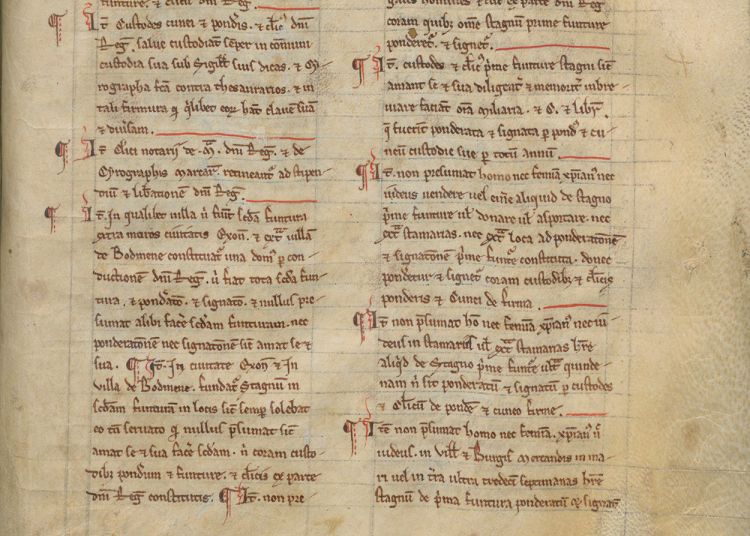 funture. & clici dni Reg.
¶ It Custodes cunei & pondis. & clic' dni
Reg. salue custodiat semp in comuni
custodia sua sub sigill' suis dicas. & Cy-
rographa fca contra thesaurarios. & in
tali firmura q quilibet eor' hat clauem sua
& diuisam.
¶ It Clici notarij de dni Reg. & de
Cyrographis marcar'. remueant' ad stipen-
diu & libatione dni Reg.
¶ It In qualibet uilla u fiut secda funtura
extra muros ciuitatis Exon. & ext uilla
de Bodmene constituat' una dom' p con-
ductione dni Reg. u fiat tota secda fun-
tura. & pondato. & signato. & nullus pre-
sumat alibi face secdam funturam. nec
ponderatone nec signatone sic amat se &
sua. ¶ It. In ciuitate Exon & In
uilla de Bodmene. fundat' stagnum in
secdam funturam in locis sic semp solebat
eo tn seruato q nullus psumat sic
amat se & sua face secdam. n coram custo-
dib; pondum & funture. & clicis ex parte
dni Reg constitutis. ¶ It. non pre-
coram quib; ome stagnum prime funture
ponderet'. & signet'.
¶ It. custodes & clici pme funture stagni sic
amant se & sua diligent' & memorit' inbre-
uiare faciant oma miliaria. & C. & libr'.
q fuerint ponderata & signata p pond' & cu-
neu custodie sue p totum annum.
¶ It. non presumat homo nec femina xpian' nec
iudeus uendere uel eme aliquid de stagno
pme funture ul donare ul asportare. nec
ext stamarias. nec ext loca ad ponderatone
& signatone pme funt'e constituta. donec
pondetur & signet' coram custodib; & clicis
ponderis & Cunei de firma.
¶ It non psumat ho nec femina xpian' nec iu-
deus in stamariis ul ext stamarias hre
aliqd de stagno pme funt'e ult quinde-
nam n sic ponderatu & signatum p custodes
& clicum de ponde & cuneo firme.
¶ It non psumat homo nec femina. xpian' n
iudeus. in uill' & Burgis mercandis in ma-
ri uel in tra ultra tredeci septimanas hre
stagnum de pma funtura ponderatu & signat'